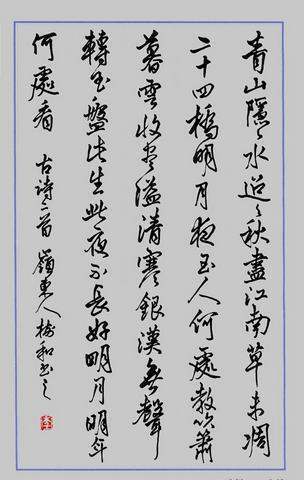 青山隱々水迢々秋盡江南草未凋
二十四橋明月夜玉人何處教吹簫
暮雲收尽溢清寒銀漢無聲
轉玉盤此生此夜不長好明月明年
何處看 古詩二首 嶺東人樹和書之